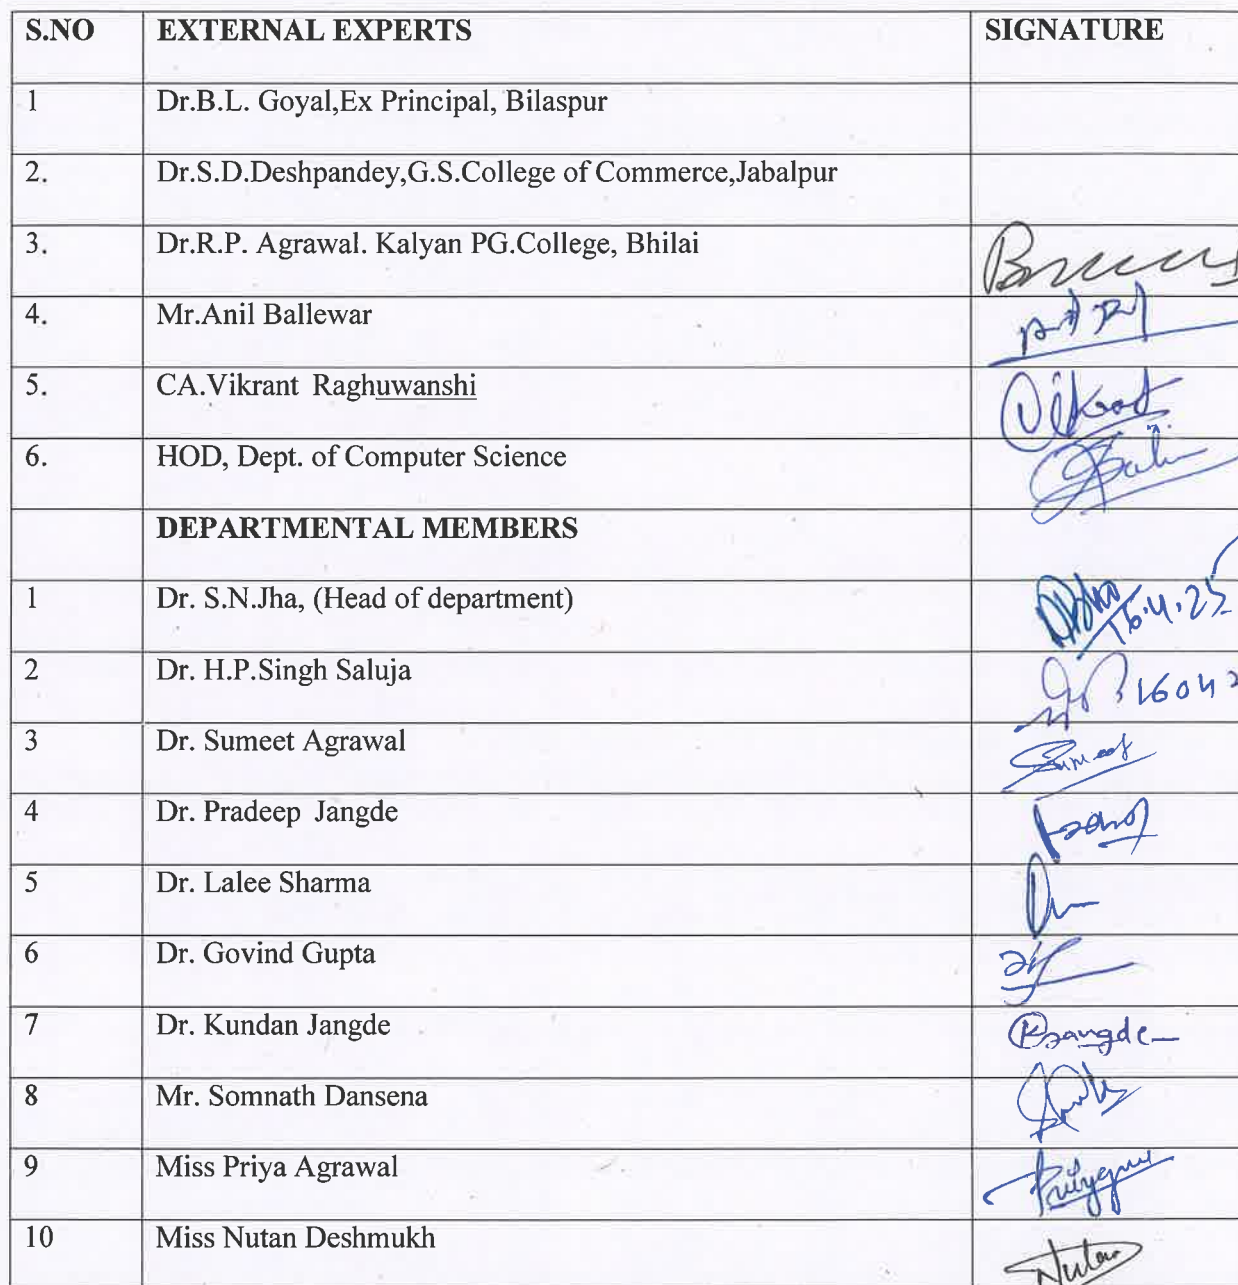 S.NO EXTERNAL EXPERTS SIGNATURE
1 Dr.B.L. Goyal,Ex Principal, Bilaspur
2. Dr.S.D.Deshpandey,G.S.College of Commerce,Jabalpur
3. Dr.R.P. Agrawal. Kalyan PG.College, Bhilai
4. Mr.Anil Ballewar
5. CA.Vikrant Raghuwanshi Vikrant
6. HOD, Dept. of Computer Science
DEPARTMENTAL MEMBERS
1 Dr. S.N.Jha, (Head of department) 16.4.25
2 Dr. H.P.Singh Saluja 16042
3 Dr. Sumeet Agrawal Sumeet
4 Dr. Pradeep Jangde
5 Dr. Lalee Sharma
6 Dr. Govind Gupta
7 Dr. Kundan Jangde KJangde
8 Mr. Somnath Dansena
9 Miss Priya Agrawal
10 Miss Nutan Deshmukh Nutan